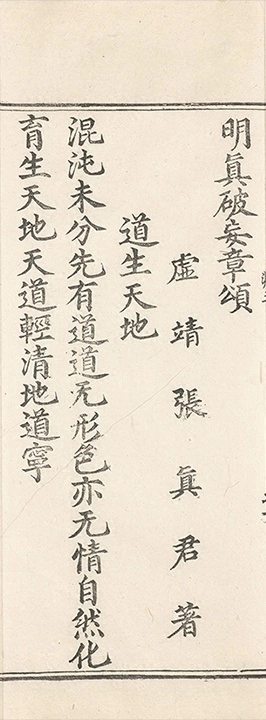 明真破妄章頌
虛靖張真君著
道生天地
混沌未分先有道道无形色亦无情自然化
育生天地天道輕清地道寧